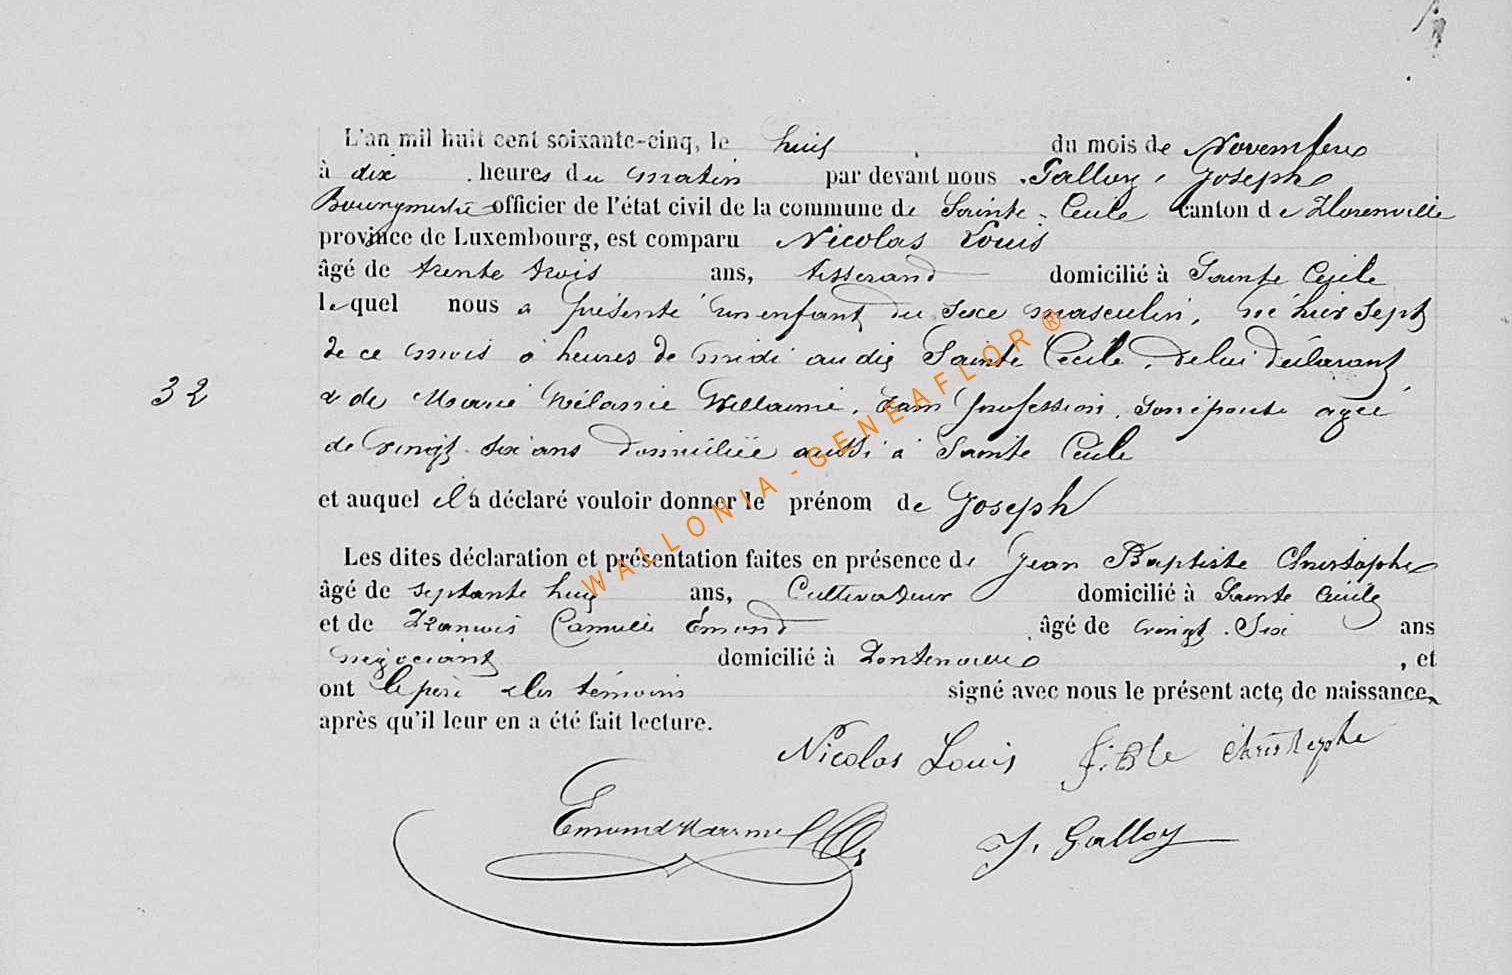 L'an mil huit cent soixante-cinq, le huit du mois de Novembre
à dix heures du matin par devant nous Galloy, Joseph
Bourgmestre officier de l'état civil de la commune de Sainte-Cécile canton de Florenville
province de Luxembourg, est comparu Nicolas Louis
âgé de trente trois ans, tisserand domicilié à Sainte Cécile
lequel nous a présenté un enfant du sexe masculin, né hier sept
de ce mois à heures de midi au dit Sainte Cécile, de lui déclarant
32
& de Marie Mélanie Willaime, sans profession, son épouse agée
de vingt-six ans domiciliée aussi à Sainte Cécile
et auquel il a déclaré vouloir donner le prénom de Joseph
Les dites déclaration et présentation faites en présence de Jean Baptiste Christophe
âgé de septante huit ans, Cultivateur domicilié à Sainte Cécile
et de François Camille Emond âgé de vingt-six ans
négociant domicilié à Fontenoille, et
ont le père & les témoins signé avec nous le présent acte de naissance,
après qu'il leur en a été fait lecture.
Nicolas Louis J. Bte Christophe
Emond J. Galloy
WALLONIA - GENEAFLOR ®